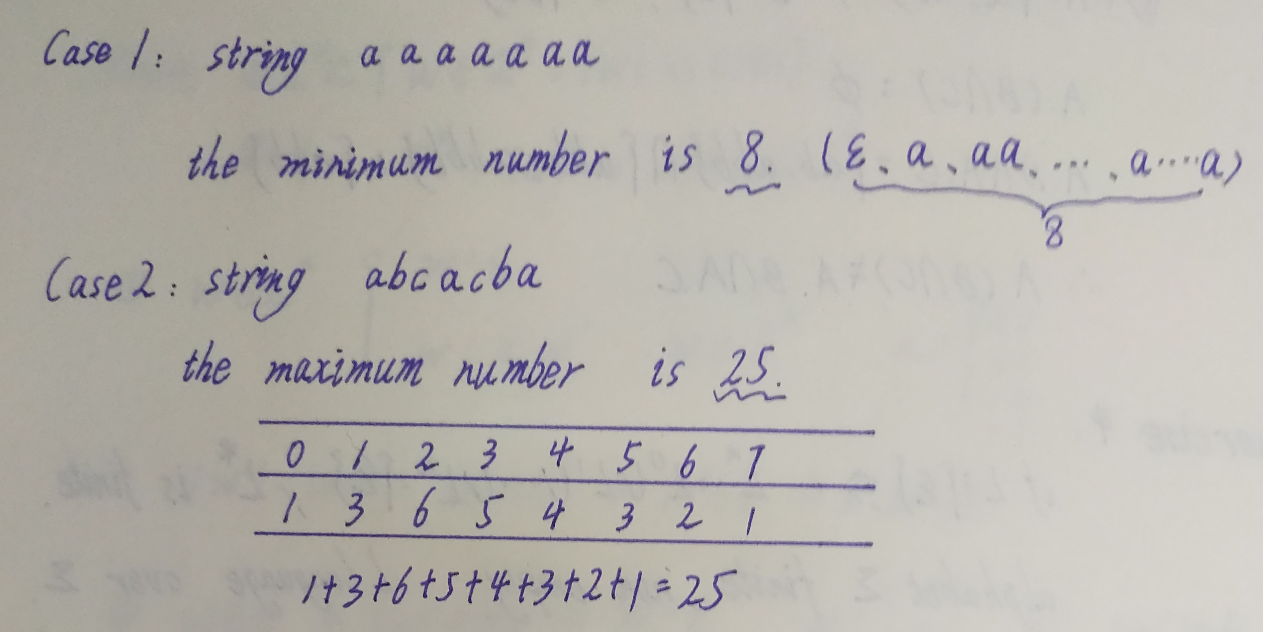 Case 1: string a a a a a a a
the minimum number is 8. (ε、a、aa、...、a....a)
8
Case 2: string abcacba
the maximum number is 25.
0 1 2 3 4 5 6 7
1 3 6 5 4 3 2 1
1+3+6+5+4+3+2+1=25